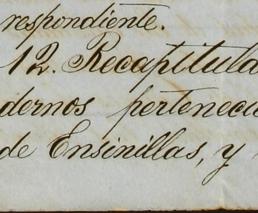 respondiente.
12. Recaptitula
dernos pertenecie
de Ensinillas, y